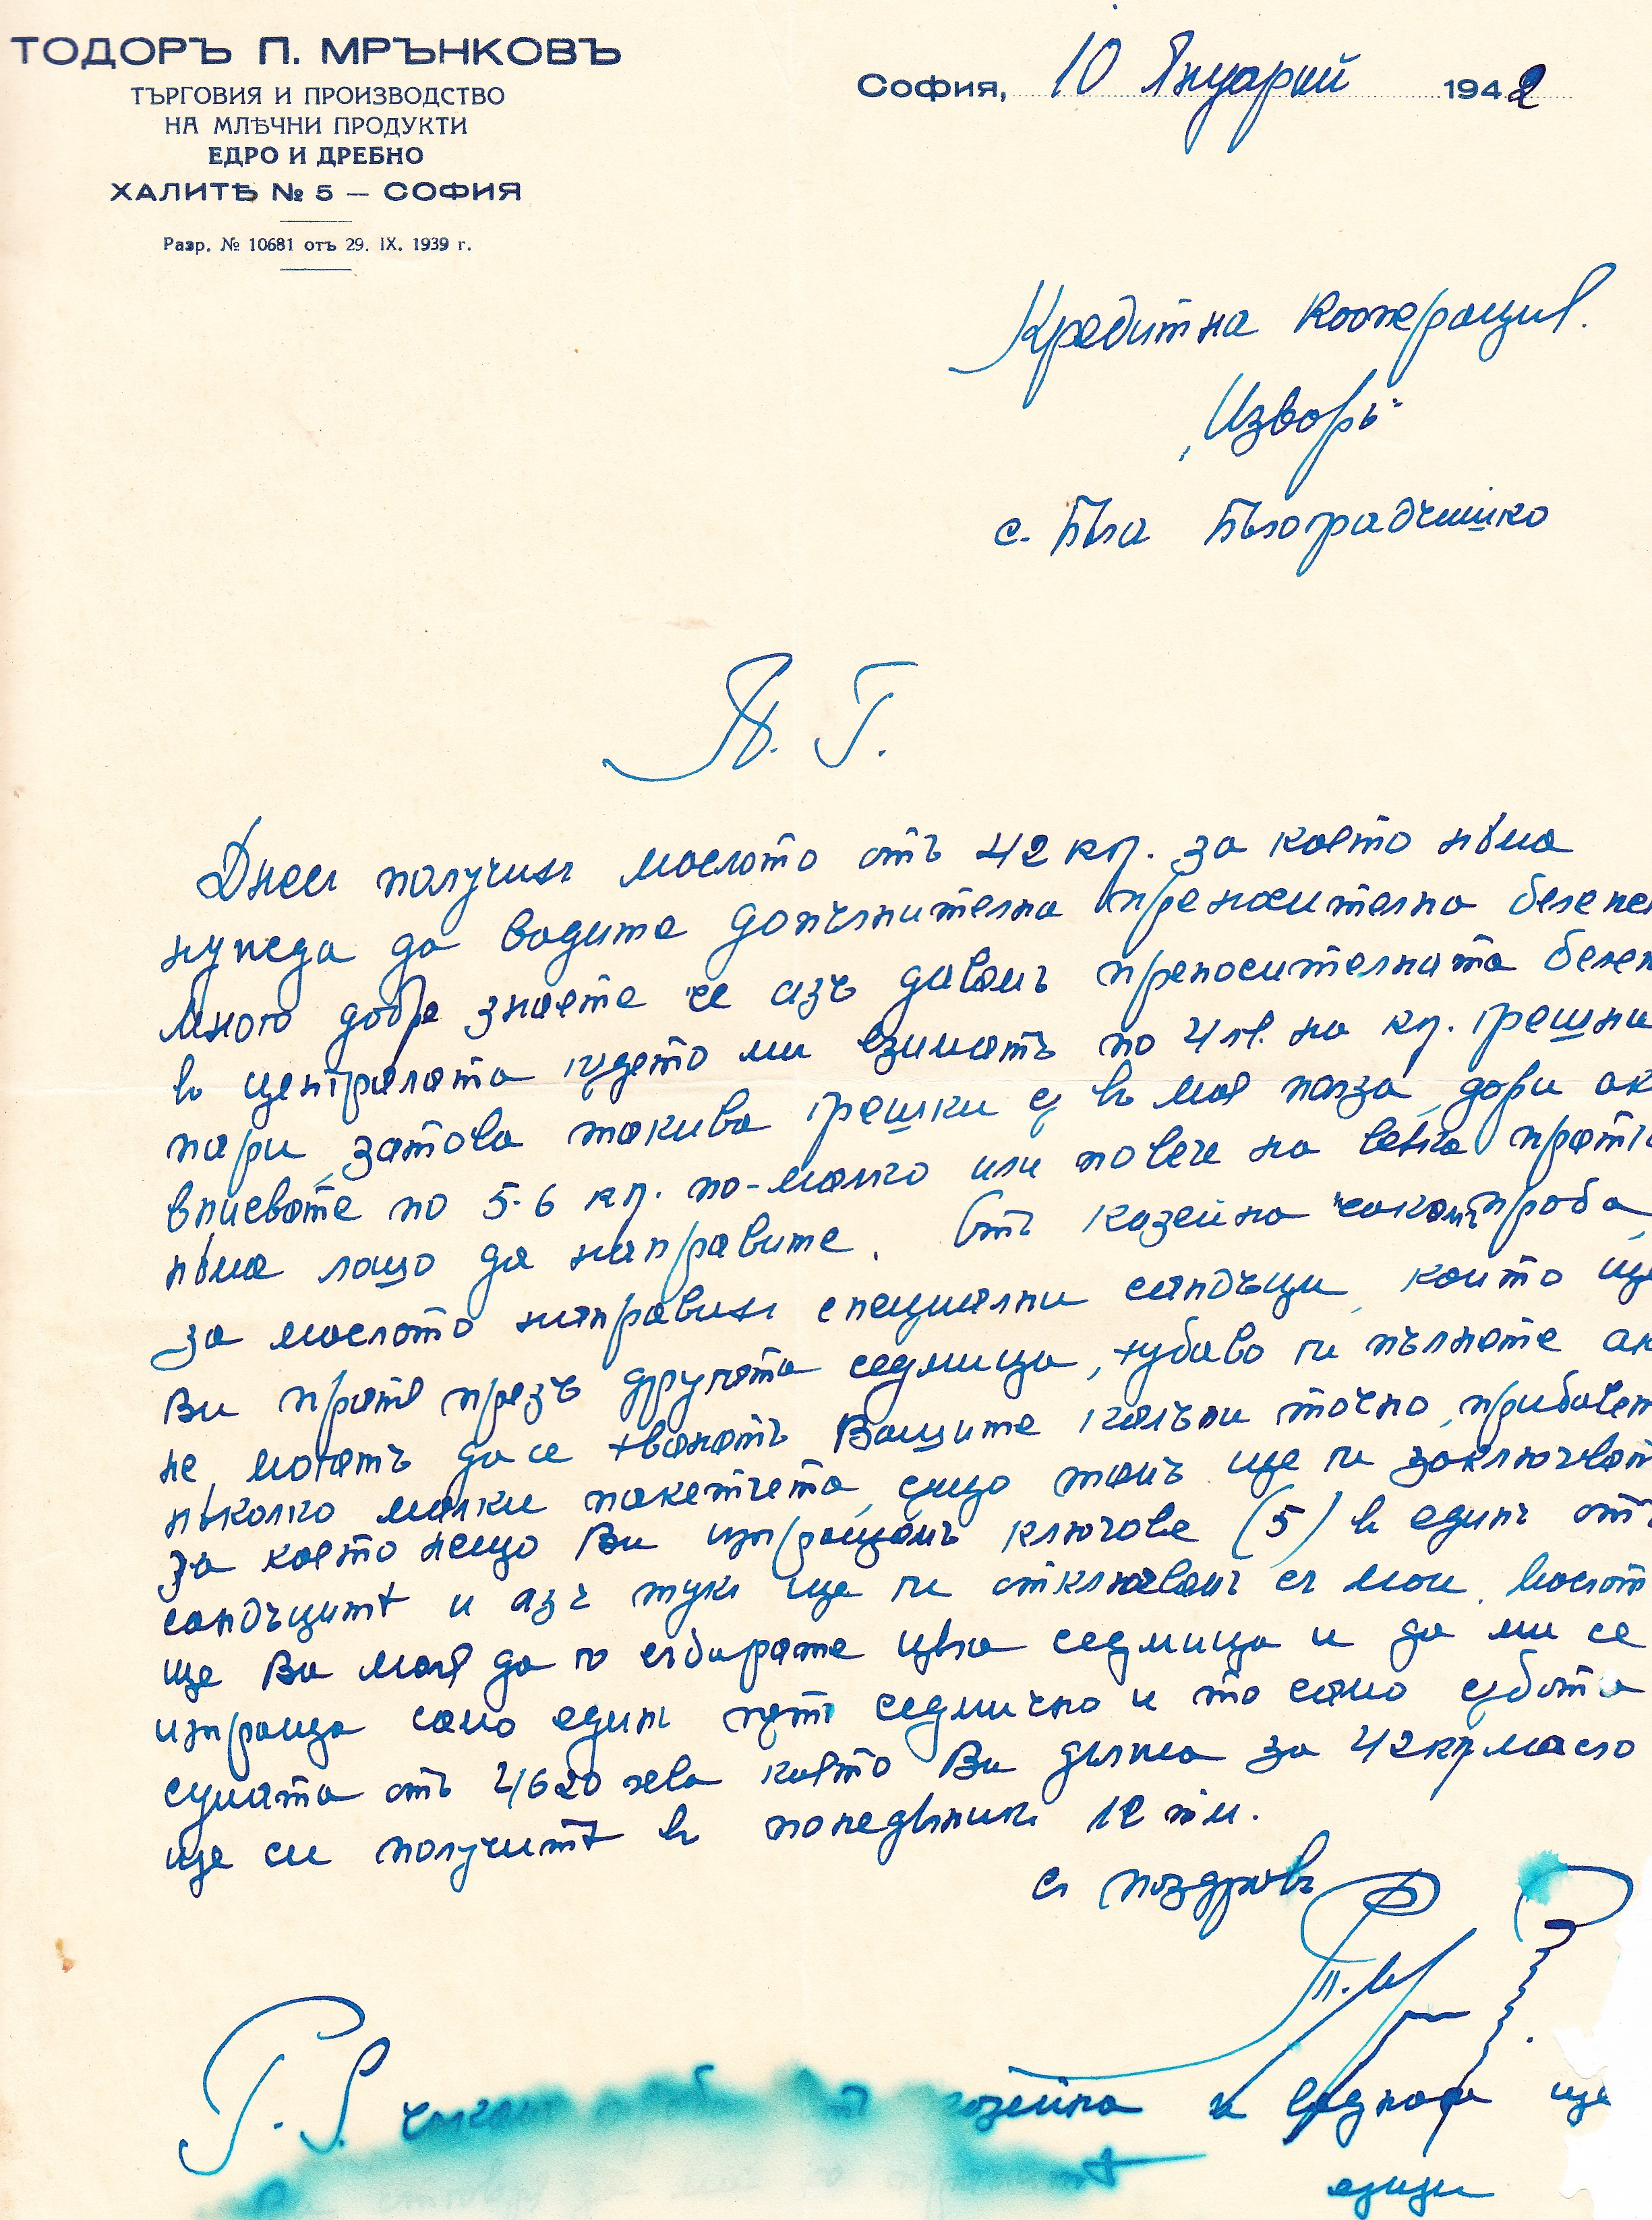 ТОДОРЪ П. МРЪНКОВЪ
ТЪРГОВИЯ И ПРОИЗВОДСТВО
НА МЛѢЧНИ ПРОДУКТИ
ЕДРО И ДРЕБНО
ХАЛИТѢ № 5 — СОФИЯ
Разр. № 10681 отъ 29. IX. 1939 г.
София, 10 Януарий 1942
Кредитна Кооперация.
„Изворъ“
с. Бѣла Бѣлоградчишко
П. Г.
Днесъ получихъ маслото отъ 42 кгр. за което нѣма
нужда да вадите допълнителна преносителна
много добре знаете че азъ давамъ преносителната
въ централата гдето ми взиматъ по 4 лв. на кгр. грешни
пари, затова такива грешки сѫ въ моя полза, дори
вписвате по 5-6 кгр. по-малко или повече на всѣка
нѣма лошо да направите. Отъ казеина чакамъ проба,
за маслото направихъ специални сандъци, които ще
Ви пратя презъ другата седмица, хубаво ги пълнете
не могатъ да се хванатъ Вашите калъпи точно,
нѣколко малки пакетчета, също тамъ ще ги
за което нещо Ви изпращамъ ключове (5) въ единъ отъ
сандъцитѣ и азъ тукъ ще ги отключвамъ съ мои.
ще Ви моля да го събирате цѣла седмица и да ми се
изпраща само единъ пѫть седмично и то само сѫбота
сумата отъ 4620 лева която Ви дължа за 42 кгр масло
ще си получитѣ въ понедѣлникъ 12 т.м.
съ поздравъ
P. S. чакамъ казеина и ще